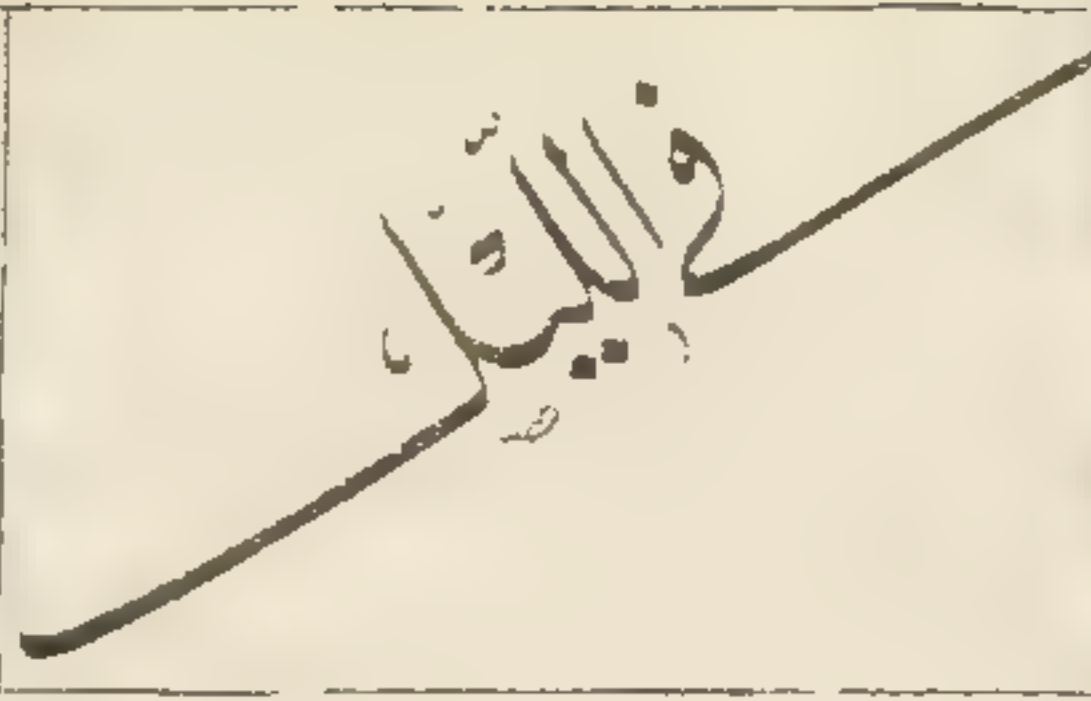 في الليل